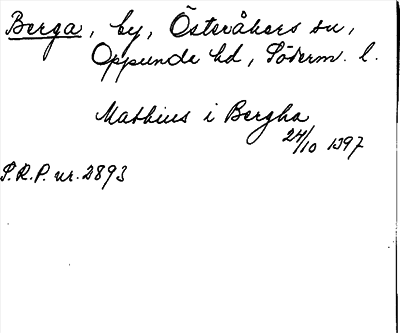 Berga, by, Österåkers sn,
Oppunda hd, Söderm. l.
Mathius i Bergha
24/10 1397
S.R.P. nr. 2893